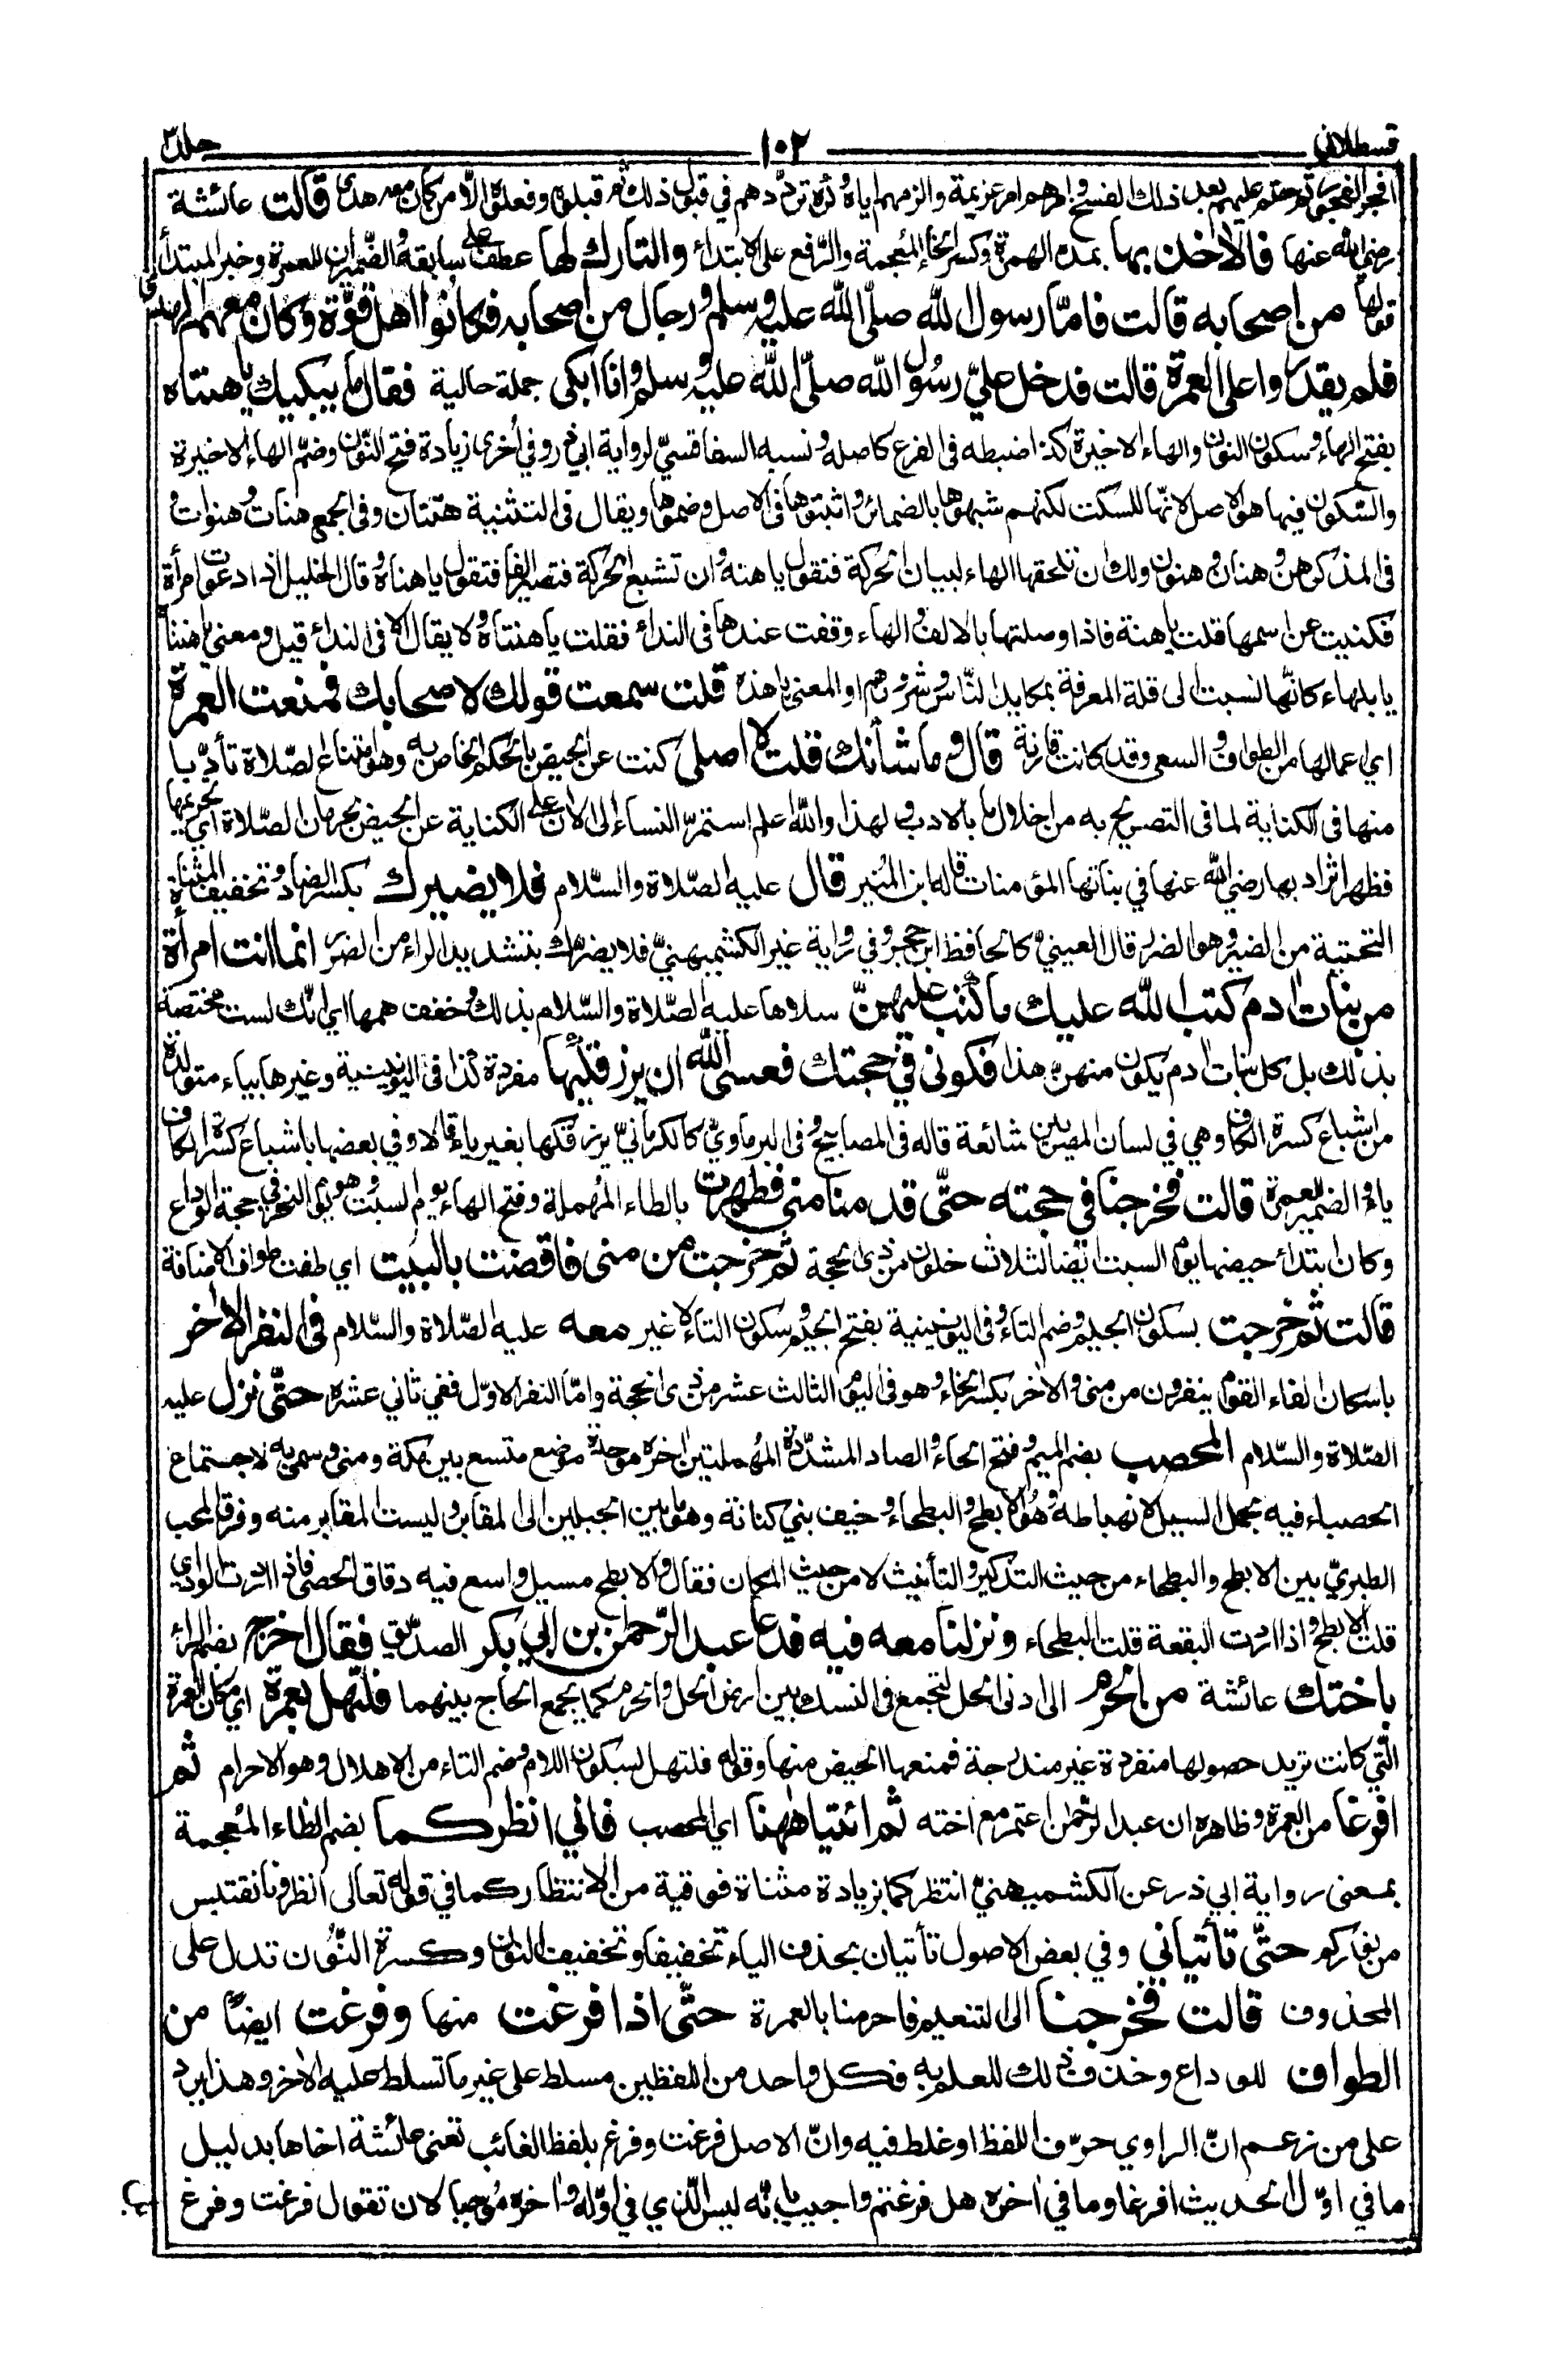 قسطلاني ١٠٢ جلد٣
افجر الفجور ثم حتم عليهم بعد ذلك الفسخ وامرهم امر عزيمة والزمهم اياه وكره ترددهم في قبول ذلك ثم قبلوه وفعلوه الا من كان معه هدى قالت عائشة
رضي الله عنها فالاخذ بها بمد الهمزة وكسر الخاء المعجمة والرفع على الابتداء والتارك لها عطف على سابقه والضميران للعمرة وخبر المبتدأ
قولها من اصحابه قالت فامّا رسول الله صلّى الله عليه وسلم ورجال من اصحابه فكانوا اهل قوّة وكان معهم الهدى
فلم يقدروا على العمرة قالت فدخل عليّ رسول الله صلّى الله عليه وسلم وانا ابكى جملة حالية فقال ما يبكيك يا هنتاه
بفتح الهاء وسكون النون والهاء الاخيرة كذا ضبطه فى الفرع كاصله ونسبه السفاقسيّ لرواية ابي ذر وفي أخرى زيادة فتح النّون وضمّ الهاء الاخيرة
والسّكون فيها هو الاصل لانّها للسكت لكنهم شبهوها بالضمائر واثبتوها فى الاصل وضموها ويقال فى التثنية هنتان وفى الجمع هنات وهنوات
فى المذكر هن وهنان وهنون ولك ان تلحقها الهاء لبيان الحركة فتقول يا هنه وان تشبع الحركة فتصير الفا فتقول يا هناه وقال الخليل اذا دعوت امرأة
فكنيت عن اسمها قلت يا هنة فاذا وصلتها بالالف والهاء وقفت عندها فى النداء فقلت يا هنتاه ولا يقال الا فى النداء قيل ومعنى يا هنتاه
يا بلهاء كانّها نسبت الى قلة المعرفة بمكايد النّاس وشرورهم او المعنى يا هذه قلت سمعت قولك لاصحابك فمنعت العمرة
اي اعمالها من الطواف والسعى وقد كانت قارنة قال وما شأنك قلت لا اصلى كنت عن الحيض بالحكم الخاص به وهو امتناع الصّلاة تأدّبا
منها فى الكناية لما فى التصريح به من اخلال ما بالادب ولهذا والله اعلم استمرّ النساء الى الان على الكناية عن الحيض بحرمان الصّلاة اي تحريمها
فظهر اثر ادبها رضي الله عنها في بناتها المؤمنات قاله ابن المُنير قال عليه الصّلاة والسّلام فلا يضيرك بكسر الضاد وتخفيف المثناة
التحتية من الضير وهو الضرر قال العينيّ كالحافظ ابن حجر وفي رواية غير الكشميهنيّ فلا يضرّك بتشديد الراء من الضرر انما انت امرأة
من بنات ادم كتب الله عليك ما كتب عليهنّ سلاها عليه الصّلاة والسّلام بذلك وخفف همها اي انّك لست مختصة
بذلك بل كل بنات ادم يكون منهن هذا فكونى في حجتك فعسى الله ان يرزقكيها مفردة كذا فى اليونينية وغيرها بياء متولدة
من اشباع كسرة الكاف وهي في لسان المصريين شائعة قاله فى المصابيح وفى البرماويّ كالكرمانيّ يرزقكها بغير ياء وقالا وفي بعضها باشباع كسرة الكاف
ياء والضمير للعمرة قالت فخرجنا في حجته حتّى قدمنا منى فطهرت بالطاء المهملة وفتح الهاء يوم السبت وهو يوم النحر في حجة الوداع
وكان ابتداء حيضها يوم السبت ايضا لثلاث خلون من ذى الحجة ثم خرجت من منى فافضت بالبيت اي طفت طواف الافاضة
قالت ثم خرجت بسكون الجيم وضم التاء وفى اليونينية بفتح الجيم وسكون التاء لا غير معه عليه الصّلاة والسّلام فى النفر الاخر
باسكان الفاء القوم ينفرون من منى والاخر بكسر الخاء وهو فى اليوم الثالث عشر من ذى الحجة وامّا النفر الاوّل ففي ثاني عشره حتّى نزل عليه
الصّلاة والسّلام المحصب بضم الميم وفتح الحاء والصاد المشدّدة المهملتين اخره موحدة موضع متسع بين مكة ومنى وسمي به لاجتماع
الحصباء فيه بحمل السيل لانهباطه وهو الابطح والبطحاء وخيف بني كنانة وهو ما بين الجبلين الى المقابر وليست المقابر منه وفرق المحب
الطبريّ بين الابطح والبطحاء من حيث التذكير والتأنيث لا من حيث المكان فقال والابطح مسيل واسع فيه دقاق الحصى فاذا اردت الوادي
قلت الابطح واذا اردت البقعة قلت البطحاء ونزلنا معه فيه فدعا عبد الرّحمن بن ابي بكر الصدّيق فقال اخرج بضم الراء
باختك عائشة من الحرم الى ادنى الحل لتجمع فى النسك بين ارض الحل والحرم كما يجمع الحاج بينهما فلتهل بعمرة اي مكان العمرة
الّتي كانت تريد حصولها منفردة غير مندرجة فمنعها الحيض منها وقوله فلتهل بسكون اللام وضم التاء من الاهلال وهو الاحرام ثم
افرغا من العمرة وظاهره ان عبد الرّحمٰن اعتمر مع اخته ثم ائتيا هٰهنا اي المحصب فاني انظركما بضم الظاء المُعجمة
بمعنى رواية ابي ذر عن الكشميهنيّ انتظركما بزيادة مثناة فوقية من الانتظار كما في قوله تعالى انظرونا نقتبس
من نوركم حتّى تأتياني وفي بعض الاصول تأتيان بحذف الياء تخفيفا وتخفيف النون وكسرة النّون تدل على
المحذوف قالت فخرجنا الى التنعيم فاحرمنا بالعمرة حتّى اذا فرغت منها وفرغت ايضًا من
الطواف للوداع وحذف ذلك للعلم به فكل واحد من اللفظين مسلط على غير ما تسلط عليه الاخر وهذا يرد
على من زعم انّ الراوي حرّف اللفظ او غلط فيه وانّ الاصل فرغت وفرغ بلفظ الغائب تعنى عائشة اخاها بدليل
ما في اوّل الحديث افرغا وما في اخره هل فرغتم واجيب بانّه ليس الّذي في اوّله واخره مُوجبا لان تقول فرغت وفرغ